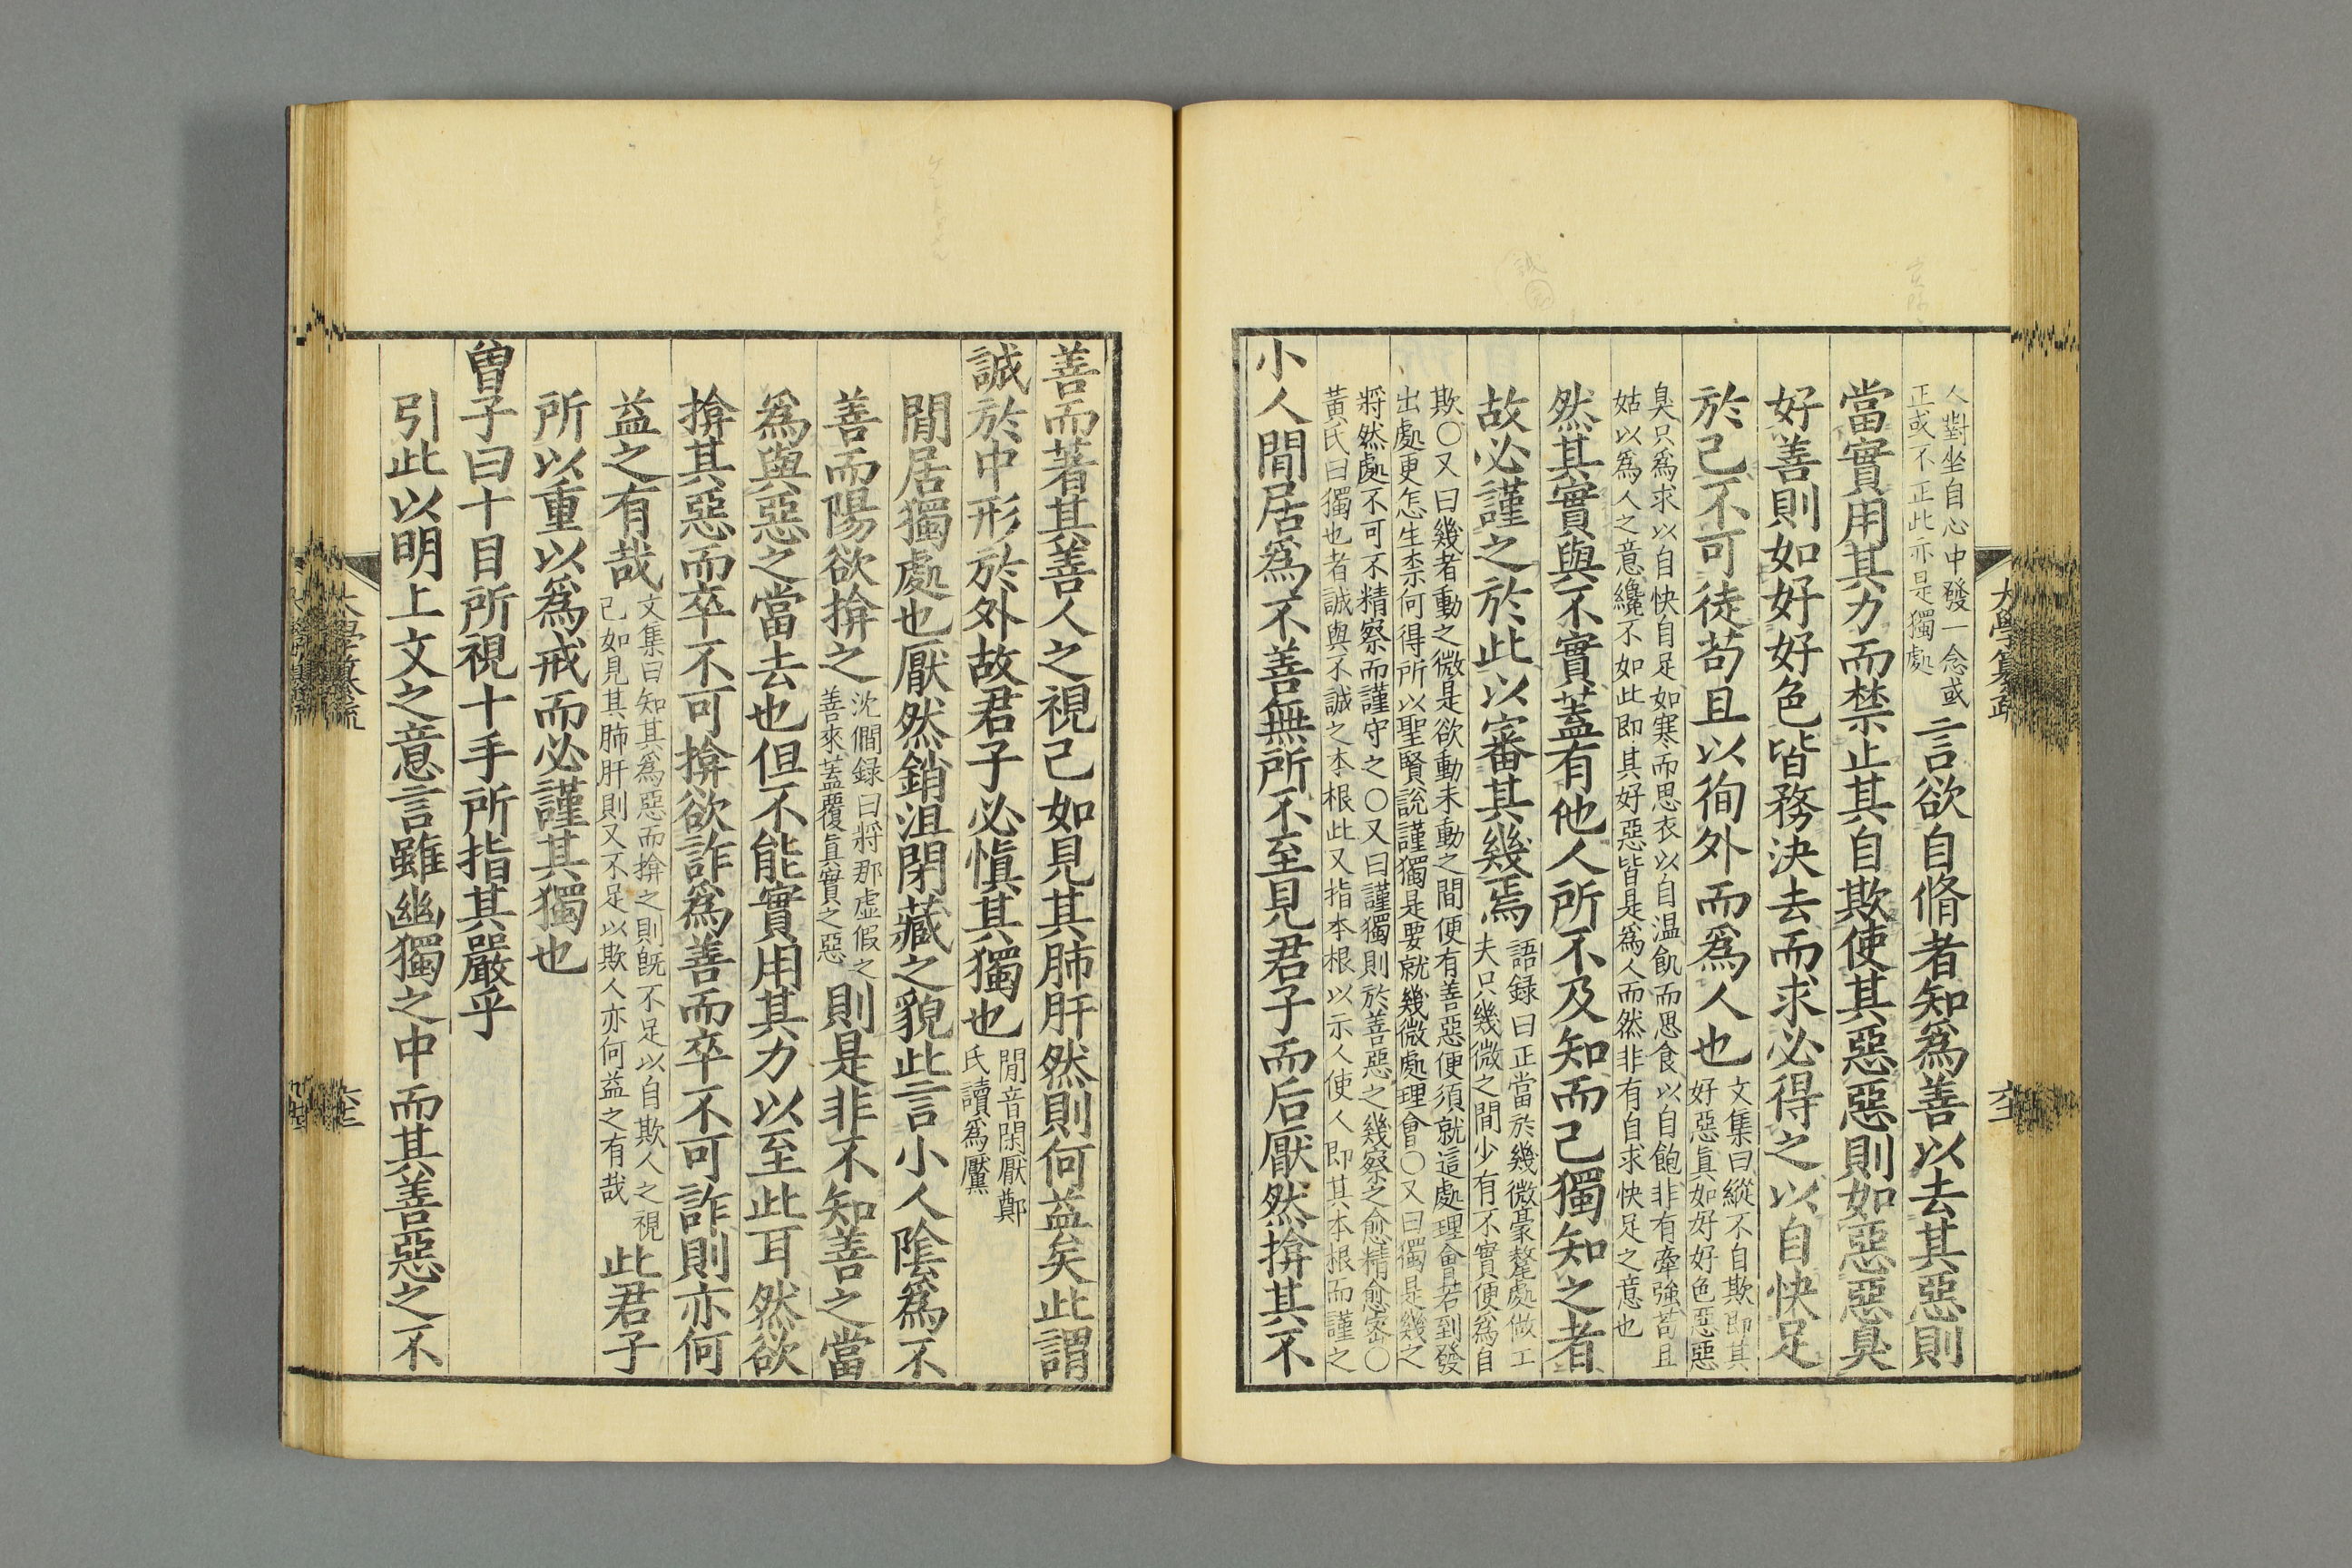 人對坐自心中發一念或
正或不正此亦是獨處
言欲自脩者知爲善以去其惡則
當實用其力而禁止其自欺使其惡惡則如惡惡臭
好善則如好好色皆務決去而求必得之以自快足
於己不可徒苟且以徇外而爲人也
文集曰縱不自欺即其
好惡眞如好好色惡惡
臭只爲求以自快自足如寒而思衣以自温飢而思食以自飽非有牽強苟且
姑以爲人之意纔不如此即其好惡皆是爲人而然非有自求快足之意也
然其實與不實蓋有他人所不及知而己獨知之者
故必謹之於此以審其幾焉
語録曰正當於幾微豪釐處做工
夫只幾微之間少有不實便爲自
欺〇又曰幾者動之微是欲動未動之間便有善惡便須就這處理會若到發
出處更怎生柰何得所以聖賢說謹獨是要就幾微處理會〇又曰獨是幾之
將然處不可不精察而謹守之〇又曰謹獨則於善惡之幾察之愈精愈密〇
黃氏曰獨也者誠與不誠之本根此又指本根以示人使人即其本根而謹之
小人閒居爲不善無所不至見君子而后厭然揜其不
大學纂疏
善而著其善人之視己如見其肺肝然則何益矣此謂
誠於中形於外故君子必愼其獨也
閒音閑厭鄭
氏讀爲黶
閒居獨處也厭然銷沮閉藏之貌此言小人陰爲不
善而陽欲揜之
沈僩録曰將那虛假之
善來蓋覆眞實之惡
則是非不知善之當
爲與惡之當去也但不能實用其力以至此耳然欲
揜其惡而卒不可揜欲詐爲善而卒不可詐則亦何
益之有哉
文集曰知其爲惡而揜之則旣不足以自欺人之視
己如見其肺肝則又不足以欺人亦何益之有哉
此君子
所以重以爲戒而必謹其獨也
曽子曰十目所視十手所指其嚴乎
引此以明上文之意言雖幽獨之中而其善惡之不